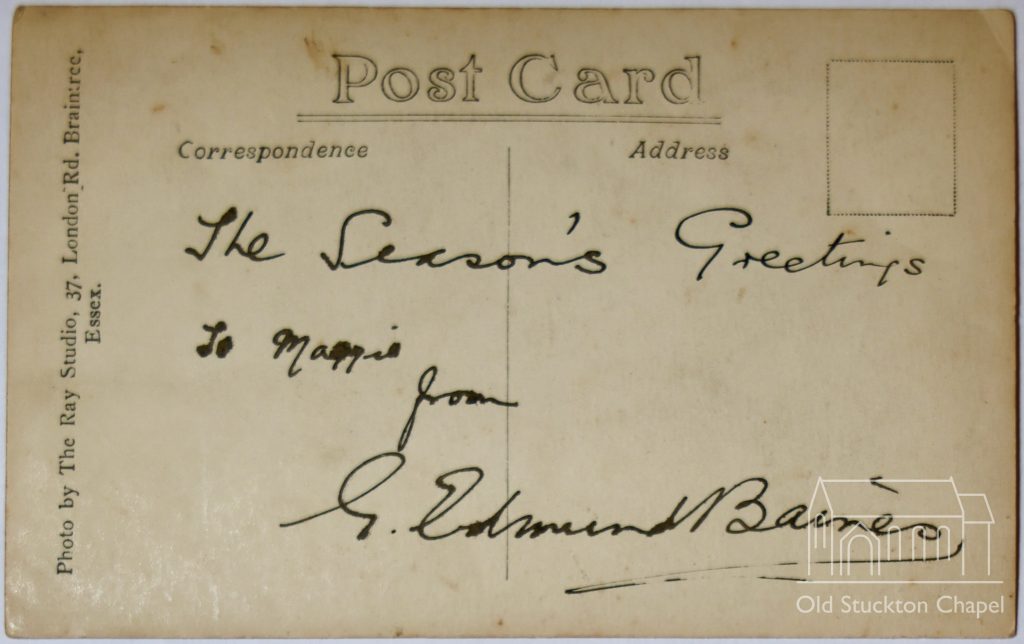 Post Card
Correspondence
Address
The Season's Greetings
To Maggie
from
G. Edmund Baines
Photo by The Ray Studio, 37, London Rd. Braintree,
Essex.
Old Stuckton Chapel